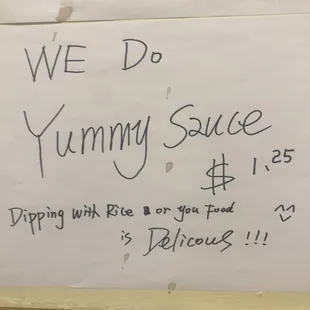 WE Do
Yummy Sauce
$ 1.25
Dipping with Rice or you Food
is Delicous !!!